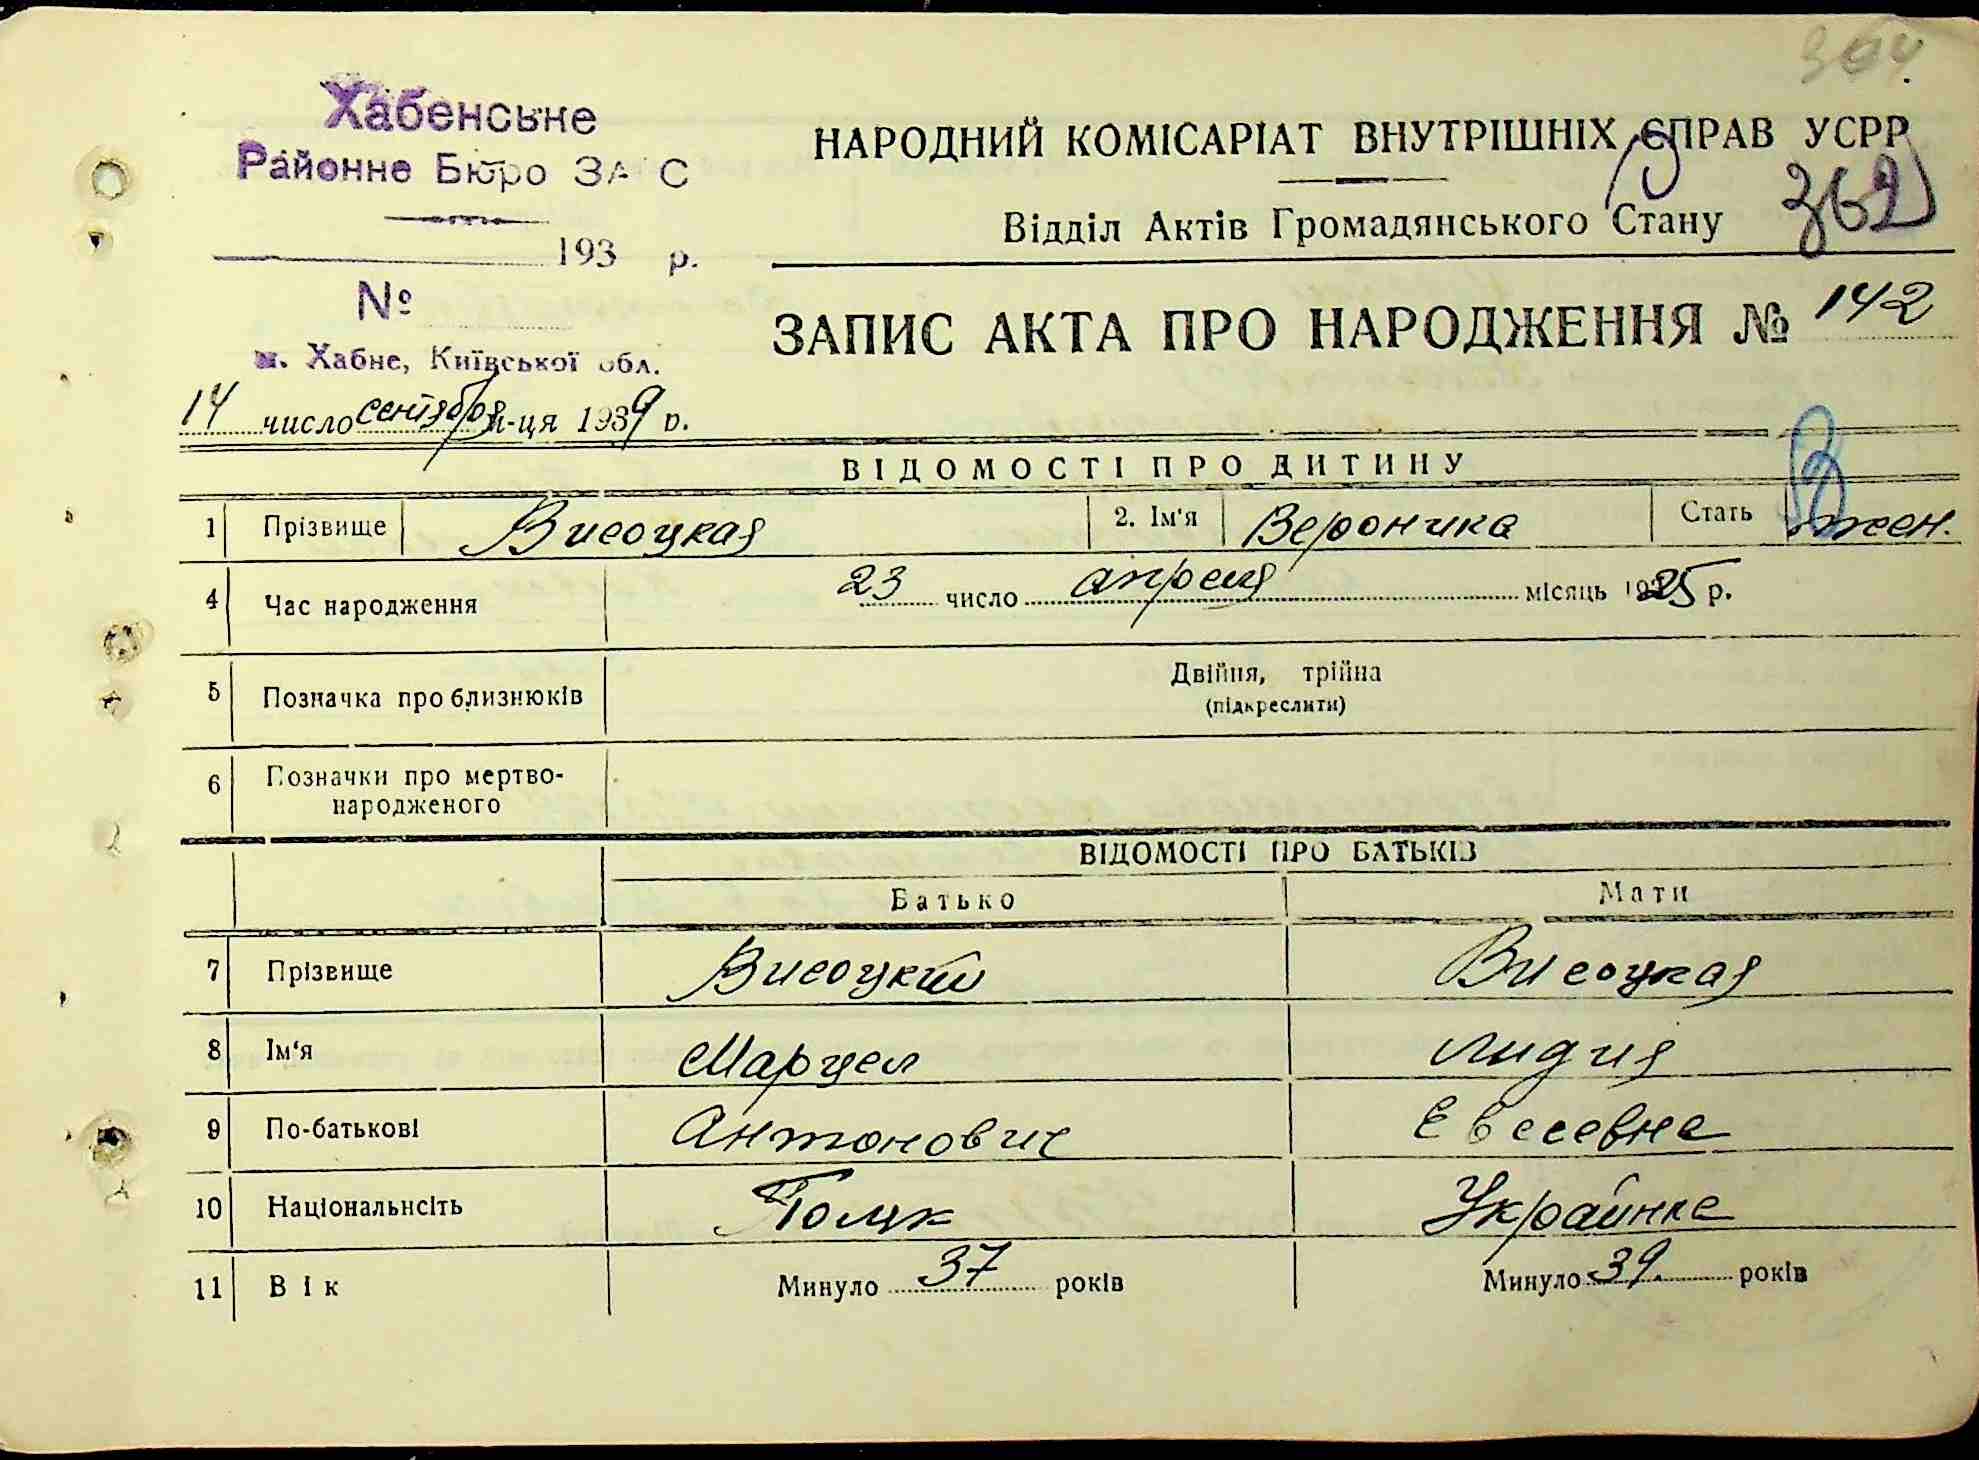 364.
Хабенське
Районне Бюро ЗАГС
193 р.
№
м. Хабне, Київської обл.
НАРОДНИЙ КОМІСАРІАТ ВНУТРІШНІХ СПРАВ УСРР
Відділ Актів Громадянського Стану
362
ЗАПИС АКТА ПРО НАРОДЖЕННЯ № 142
14 число сентября м-ця 1939 р.
ВІДОМОСТІ ПРО ДИТИНУ
1 Прізвище Висоцкая 2. Ім'я Вероника Стать жен.
4 Час народження 23 число апреля місяць 1925 р.
5 Позначка про близнюків Двійня, трійна
(підкреслити)
6 Позначки про мертво-
народженого
ВІДОМОСТІ ПРО БАТЬКІВ
Батько Мати
7 Прізвище Висоцкий Висоцкая
8 Ім'я Марцел Лидия
9 По-батькові Антонович Евсеевна
10 Національнсіть Поляк Украинка
11 Вік Минуло 37 років Минуло 39. років